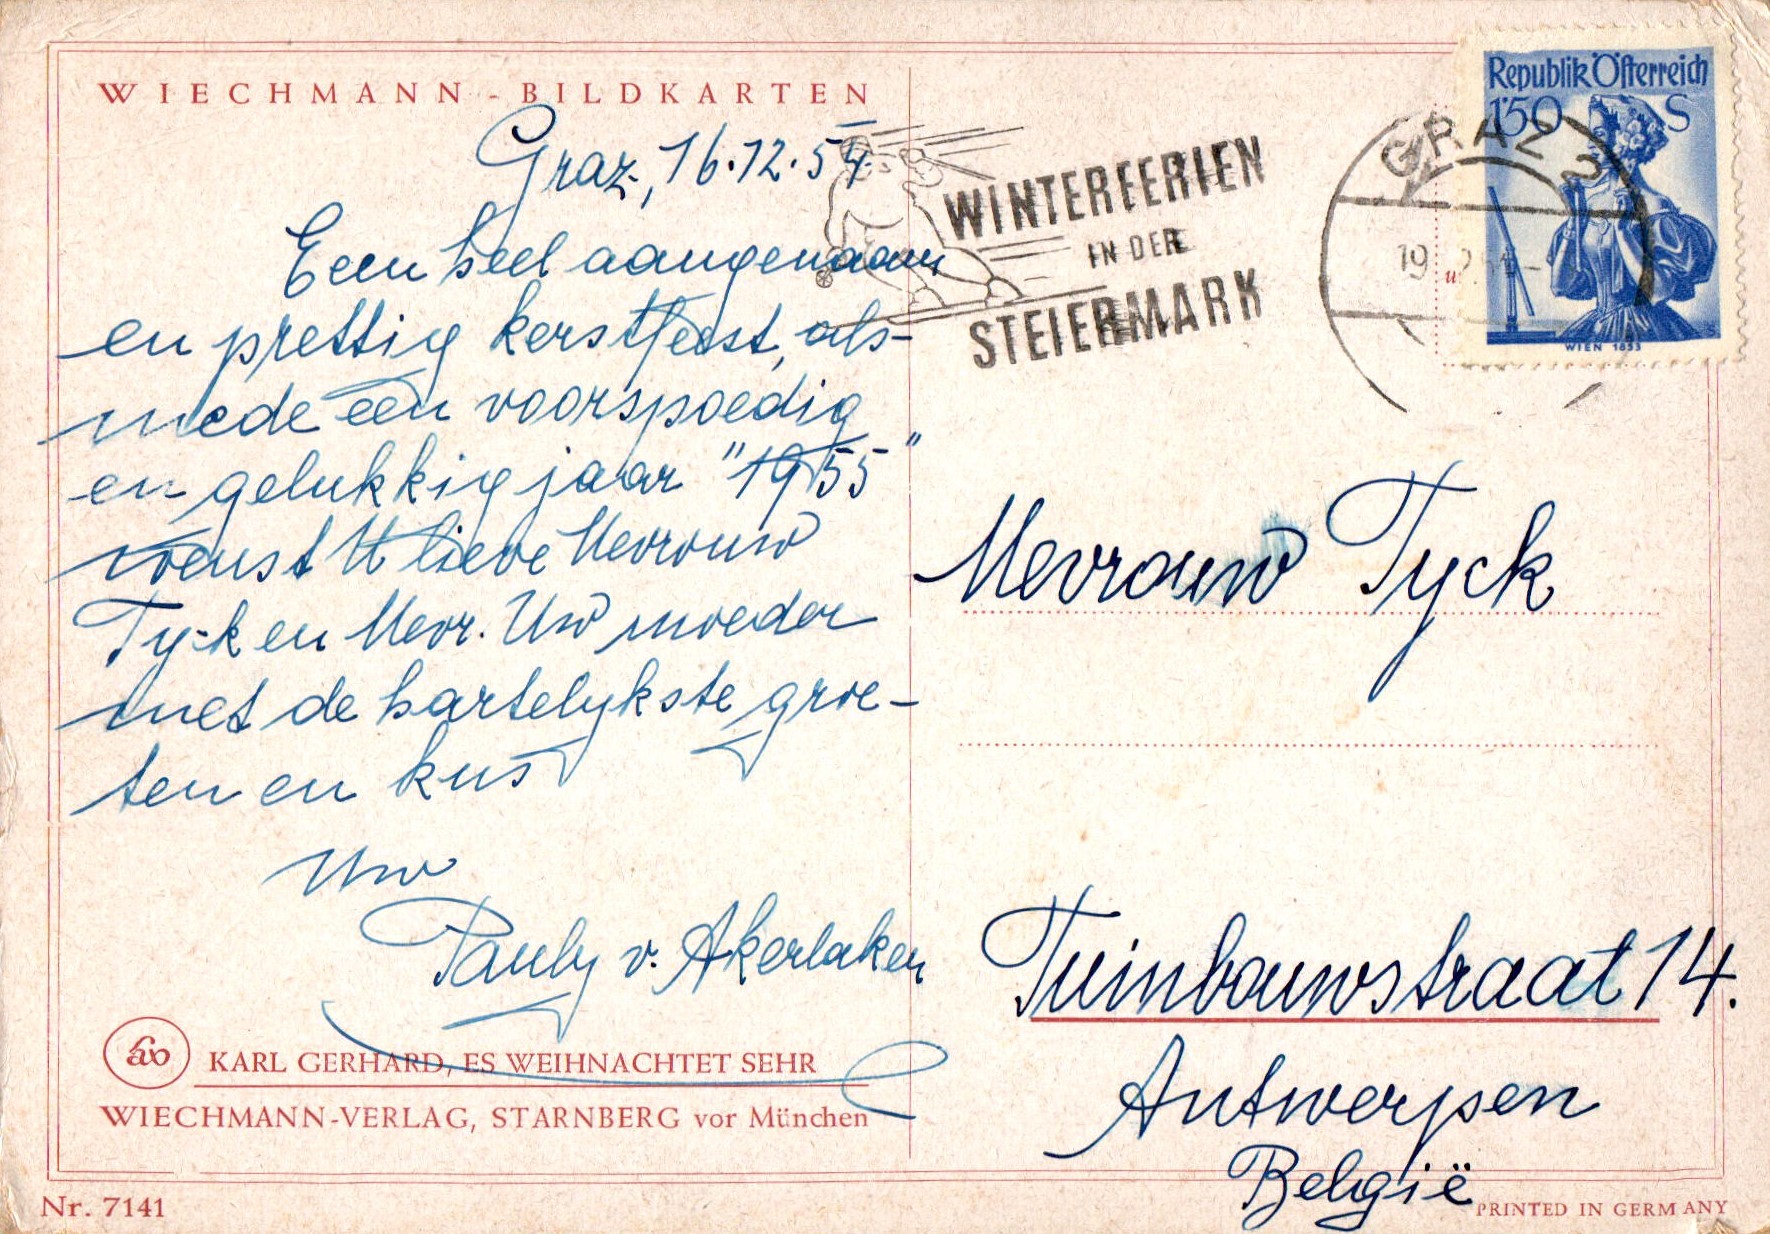 WIECHMANN - BILDKARTEN
Graz, 16.12.54.
Een heel aangenaam
en prettig kerstfeest, als-
mede een voorspoedig
en gelukkig jaar "1955"
wenst U lieve Mevrouw
Tyck en Mevr. Uw moeder
met de hartelykste groe-
ten en kus
Uw
Pauly v. Akerlaken
KARL GERHARD, ES WEIHNACHTET SEHR
WIECHMANN-VERLAG, STARNBERG vor München
Nr. 7141
WINTERFERIEN
IN DER
STEIERMARK
GRAZ 2
Republik Österreich
1'50 S
WIEN 1853
Mevrouw Tyck
Tuinbouwstraat 14.
Antwerpen
België
PRINTED IN GERMANY